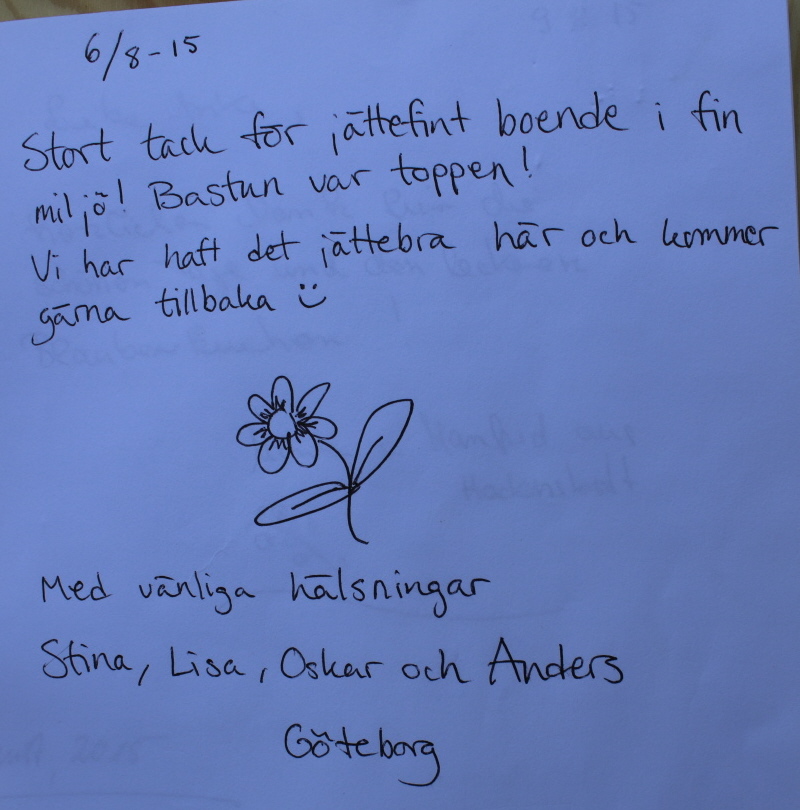 6/8-15
Stort tack för jättefint boende i fin
miljö! Bastun var toppen!
Vi har haft det jättebra här och kommer
gärna tillbaka :)
Med vänliga hälsningar
Stina, Lisa, Oskar och Anders
Göteborg